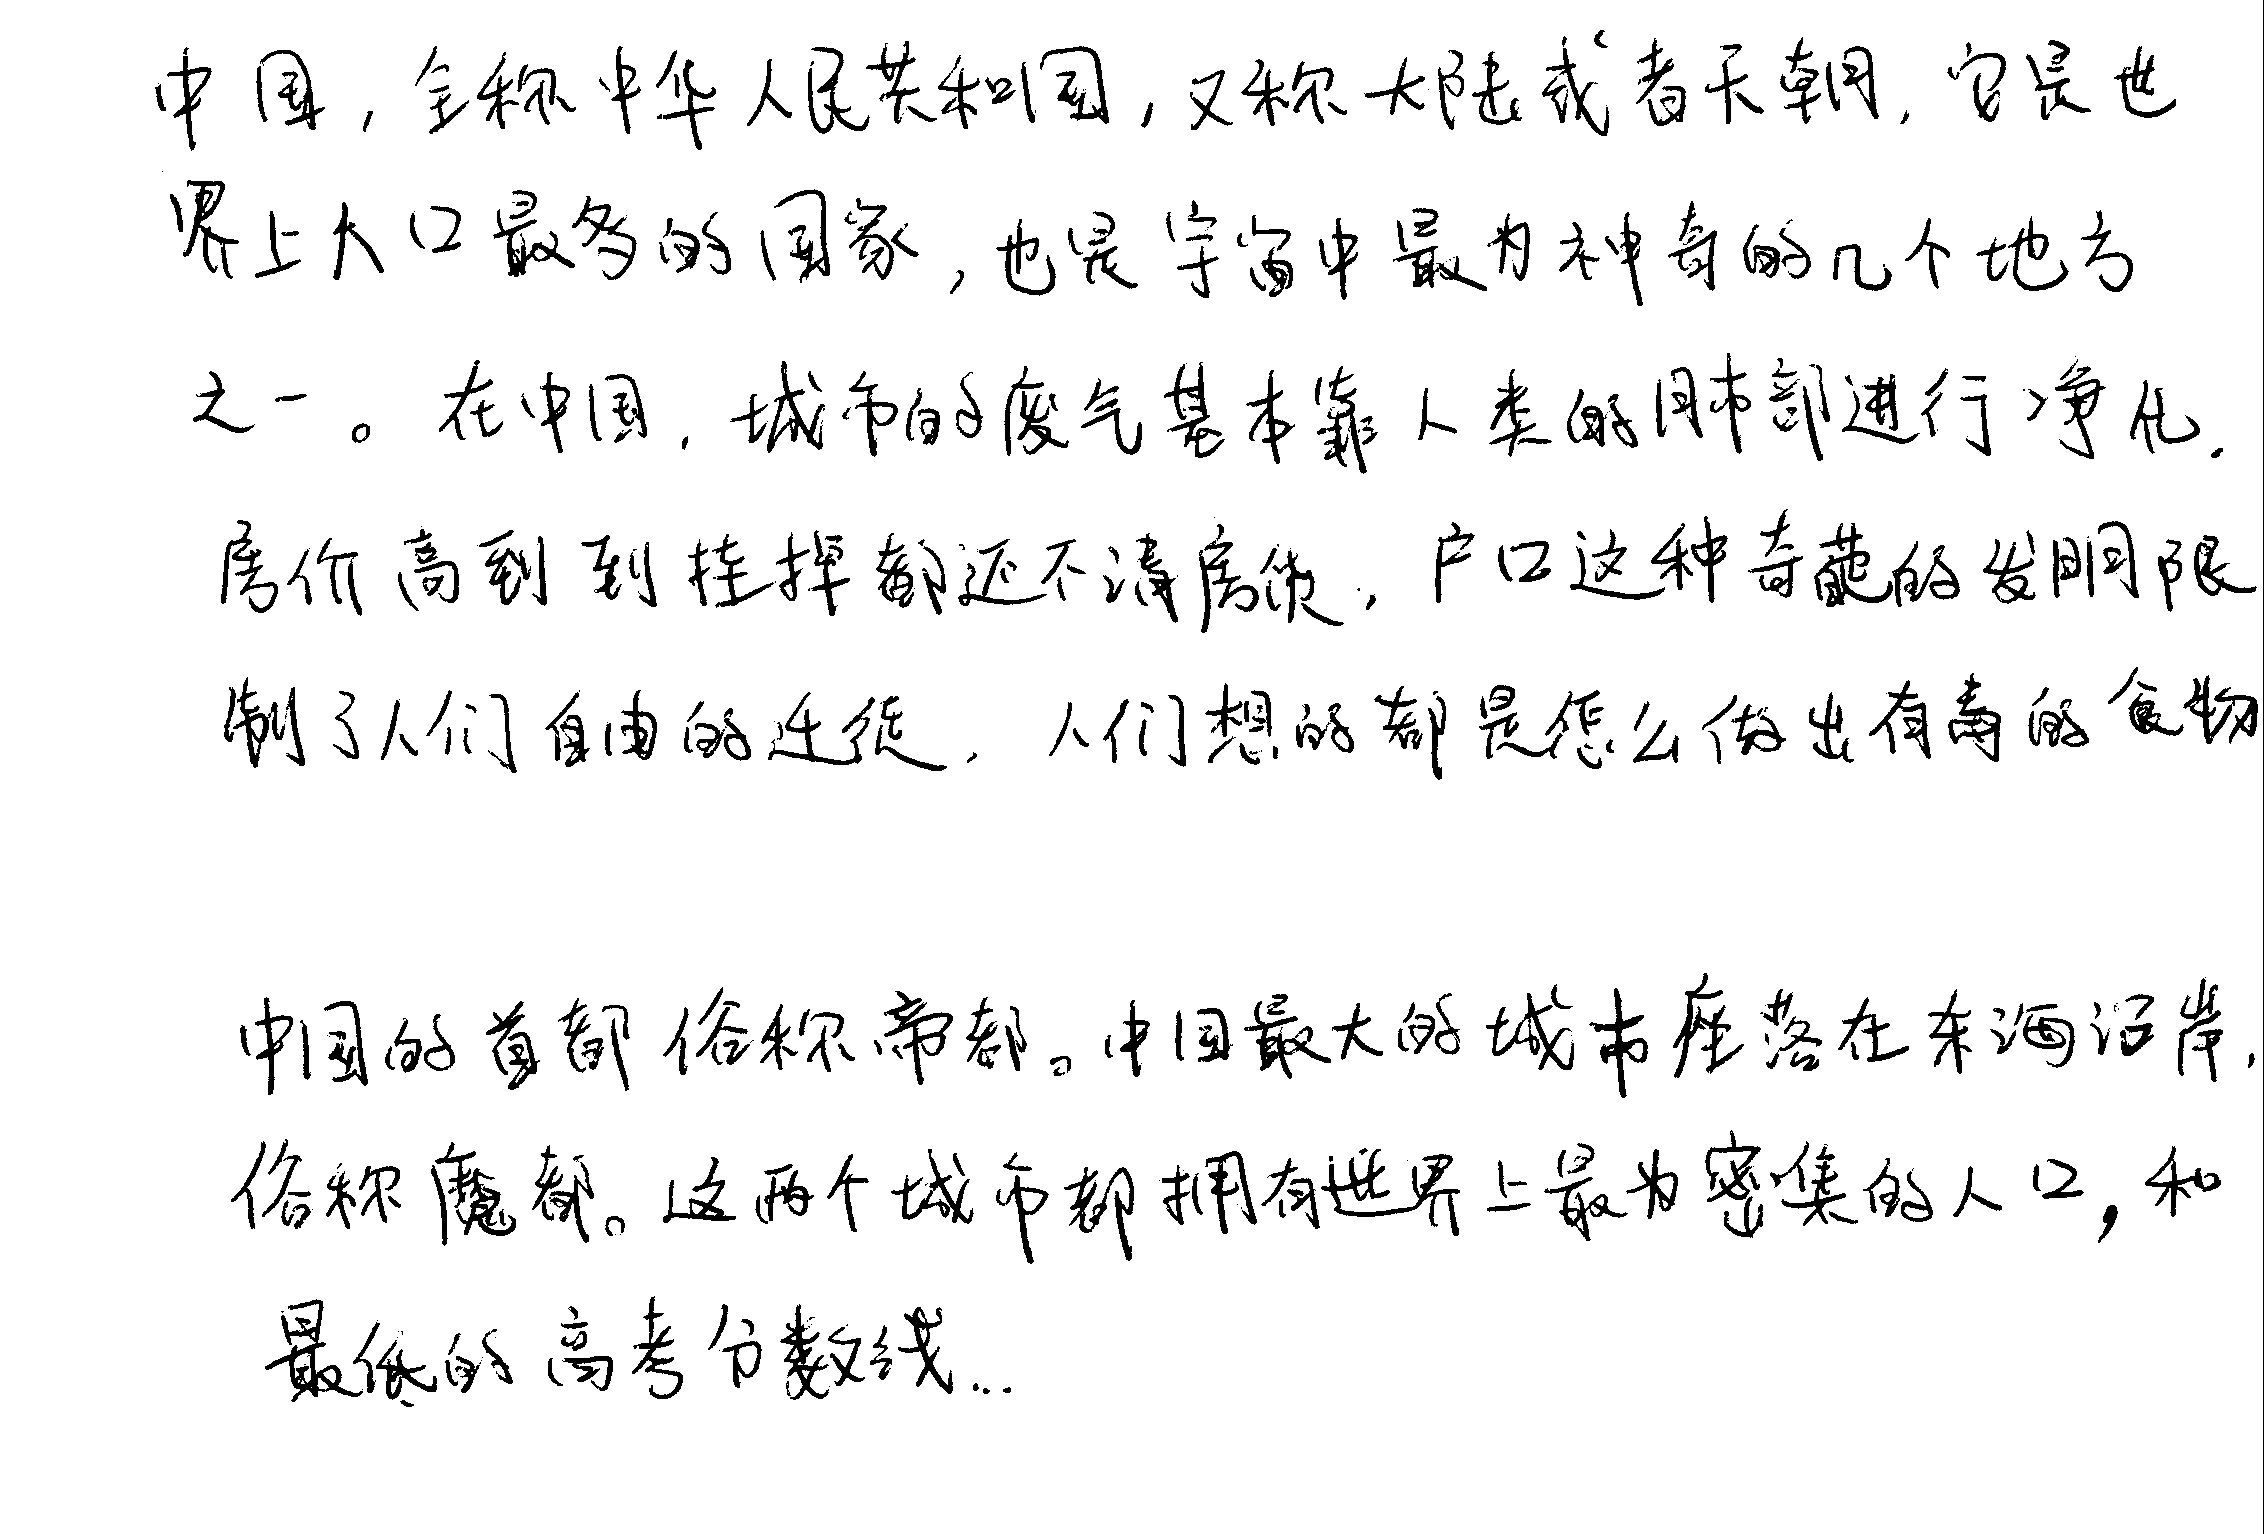 中国，全称中华人民共和国，又称大陆或者天朝，它是世
界上人口最多的国家，也是宇宙中最为神奇的几个地方
之一。在中国，城市的废气基本靠人类的肺部进行净化．
房价高到到挂掉都还不清房债，户口这种奇葩的发明限
制了人们自由的迁徙．人们想的都是怎么做出有毒的食物
中国的首都俗称帝都。中国最大的城市座落在东海沿岸，
俗称魔都。这两个城市都拥有世界上最为密集的人口，和
最低的高考分数线...